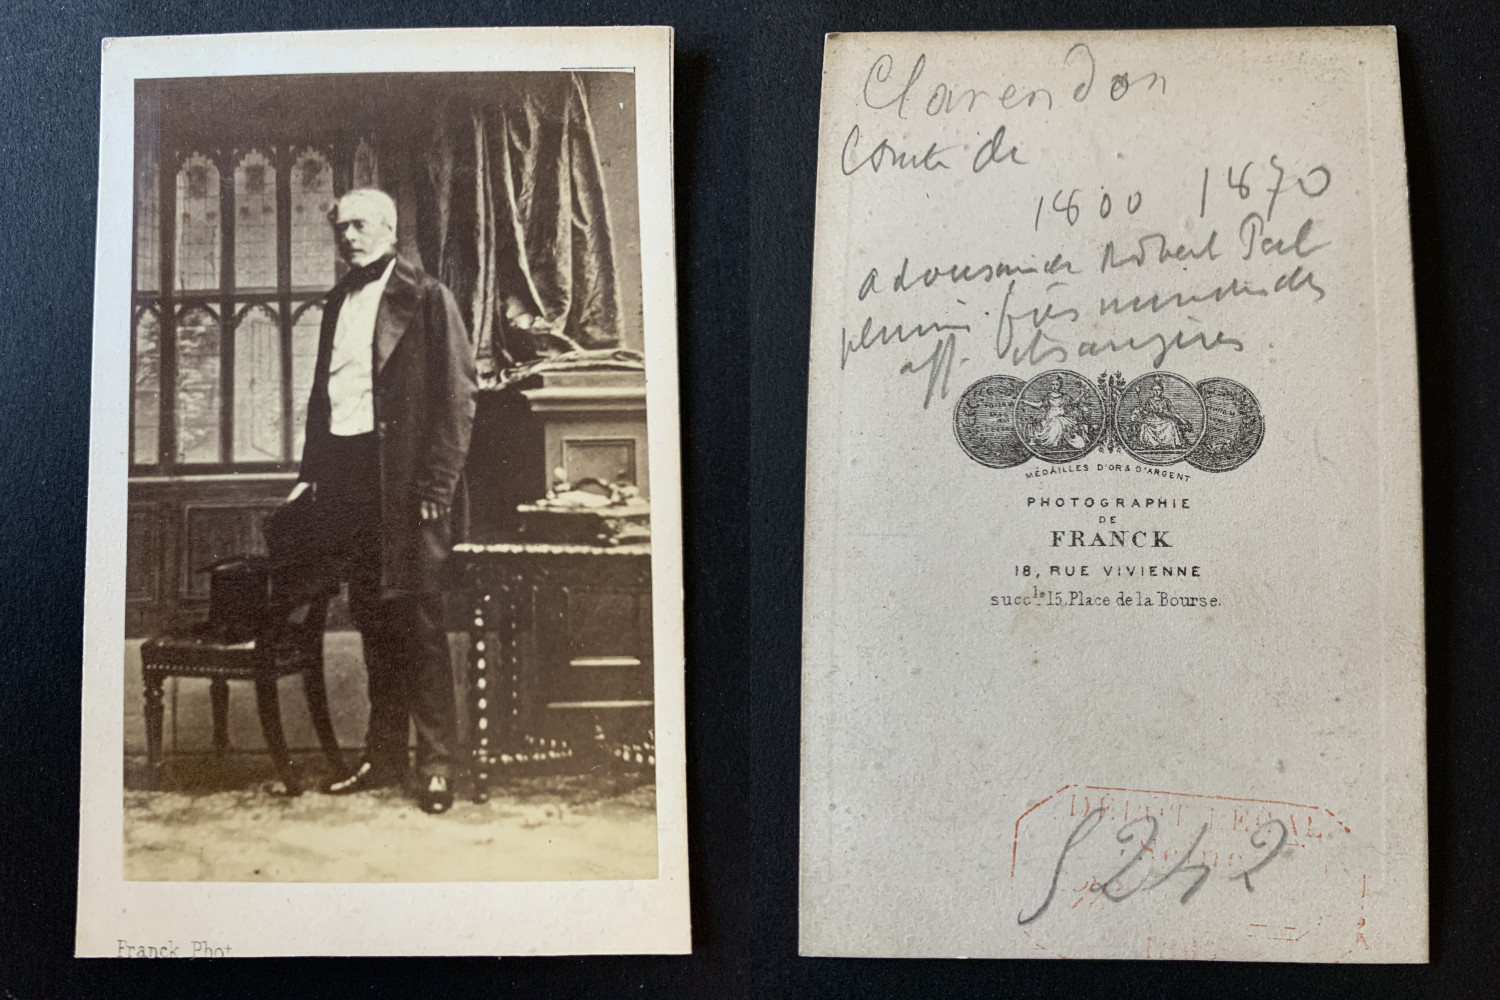 Franck Phot
Clarendon
Comte de
1800 1870
Robert Peel
aff. étrangères.
MÉDAILLES D'OR & D'ARGENT
PHOTOGRAPHIE
DE
FRANCK
18, RUE VIVIENNE
succle 15, Place de la Bourse.
DÉPÔT LÉGAL
Seine
5242